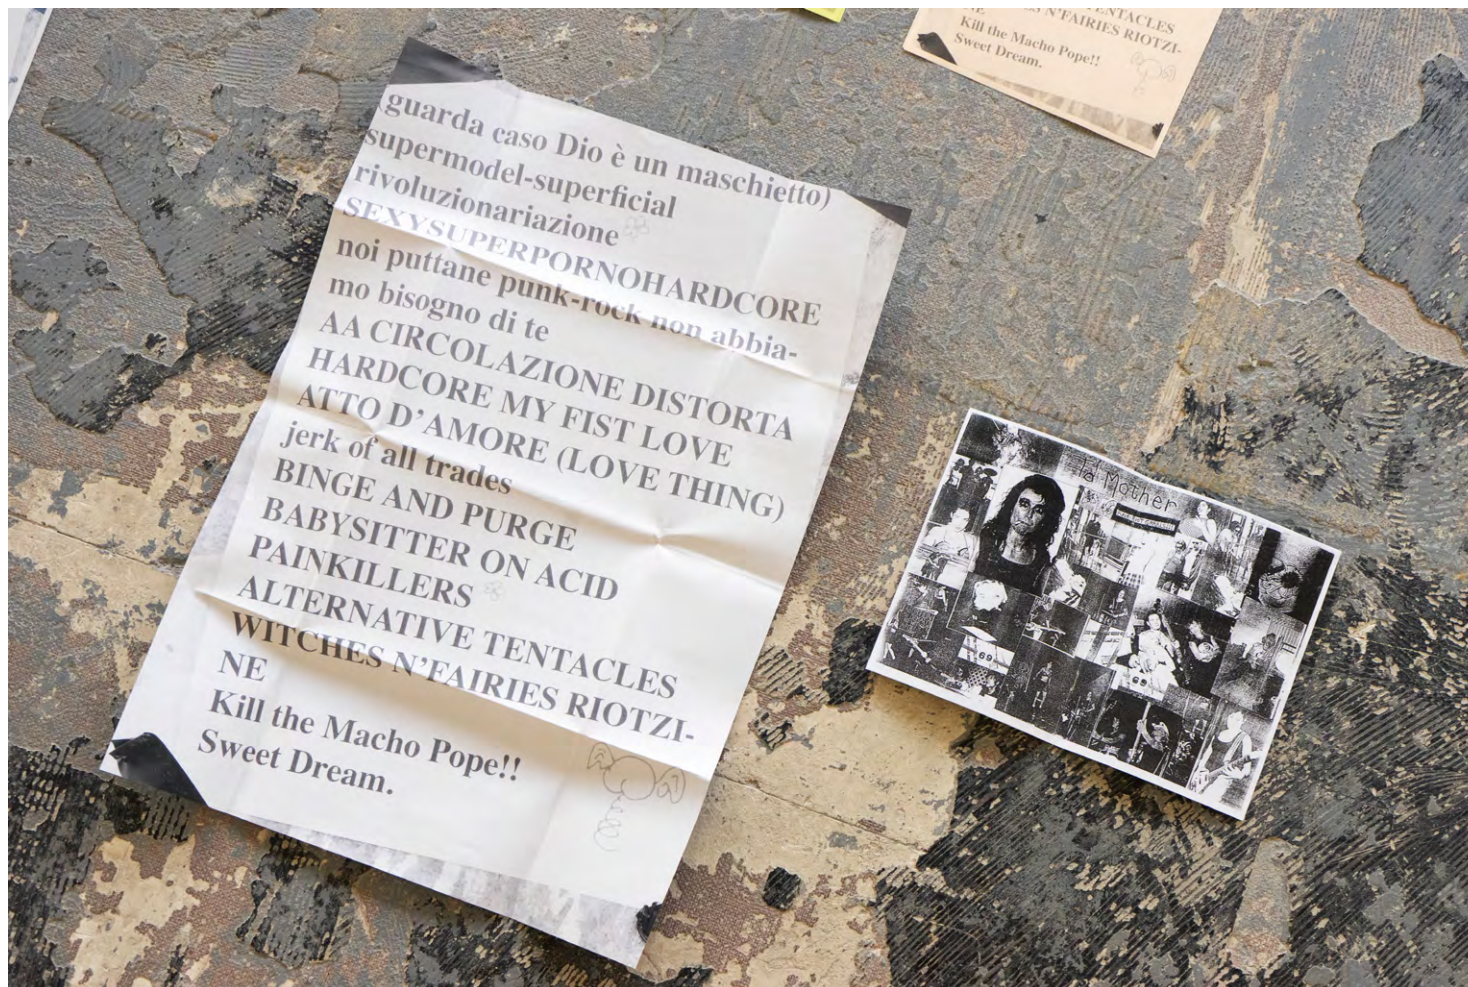 (guarda caso Dio è un maschietto)
supermodel-superficial
rivoluzionariazione
SEXYSUPERPORNOHARDCORE
noi puttane punk-rock non abbia-
mo bisogno di te
AA CIRCOLAZIONE DISTORTA
HARDCORE MY FIST LOVE
ATTO D'AMORE (LOVE THING)
jerk of all trades
BINGE AND PURGE
BABYSITTER ON ACID
PAINKILLERS
ALTERNATIVE TENTACLES
WITCHES N'FAIRIES RIOTZI-
NE
Kill the Macho Pope!!
Sweet Dream.
TENTACLES
N'FAIRIES RIOTZI-
NE.
Kill the Macho Pope!!
Sweet Dream.
Mother
69
69